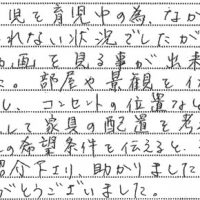 児を育児中の為、なか
れない状況でしたが
動画」を見る事が出来
た。部屋や景観をイ
し、コンセントの位置など
して家具の配置を考
の希望条件を伝えると、
紹介下さり、助かりました
がとうございました。